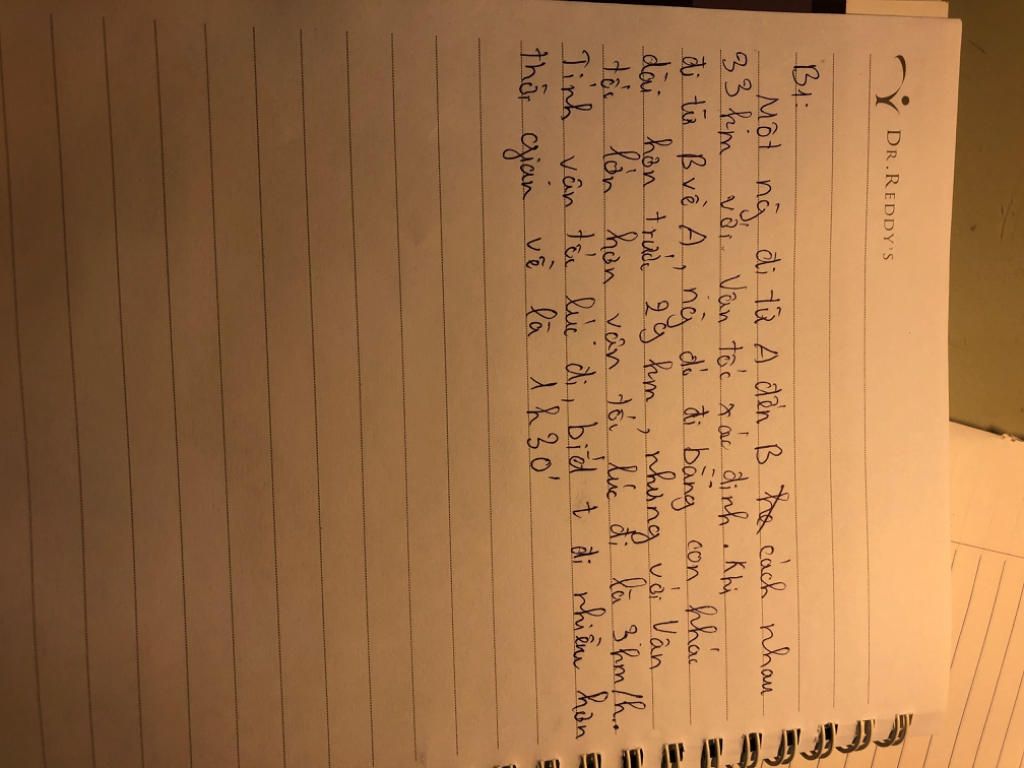 DR.REDDY'S
B1:
Một ng' đi từ A đến B cách nhau
33km với vận tốc xác định. Khi
đi từ B về A, ng đó đi bằng con khác
dài hơn trước 29 km, nhưng với vận
tốc lớn hơn vận tốc lúc đi là 3km/h.
Tính vận tốc lúc đi, biết t đi nhiều hơn
thời gian về là 1h30'